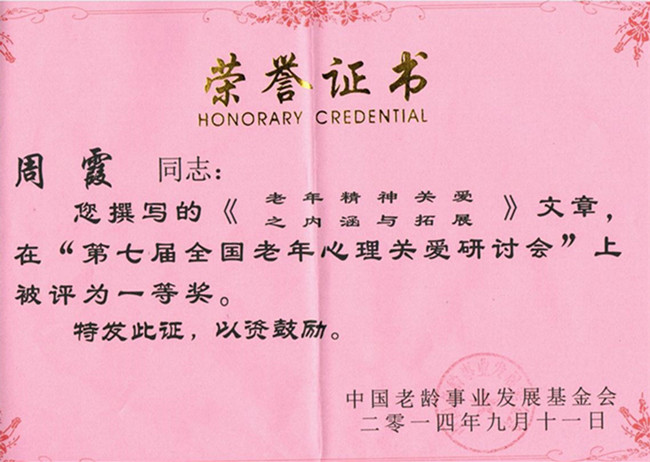 荣誉证书
HONORARY CREDENTIAL
周霞 同志：
您撰写的《老年精神关爱之内涵与拓展》文章，
在“第七届全国老年心理关爱研讨会”上
被评为一等奖。
特发此证，以资鼓励。
中国老龄事业发展基金会
二零一四年九月十一日